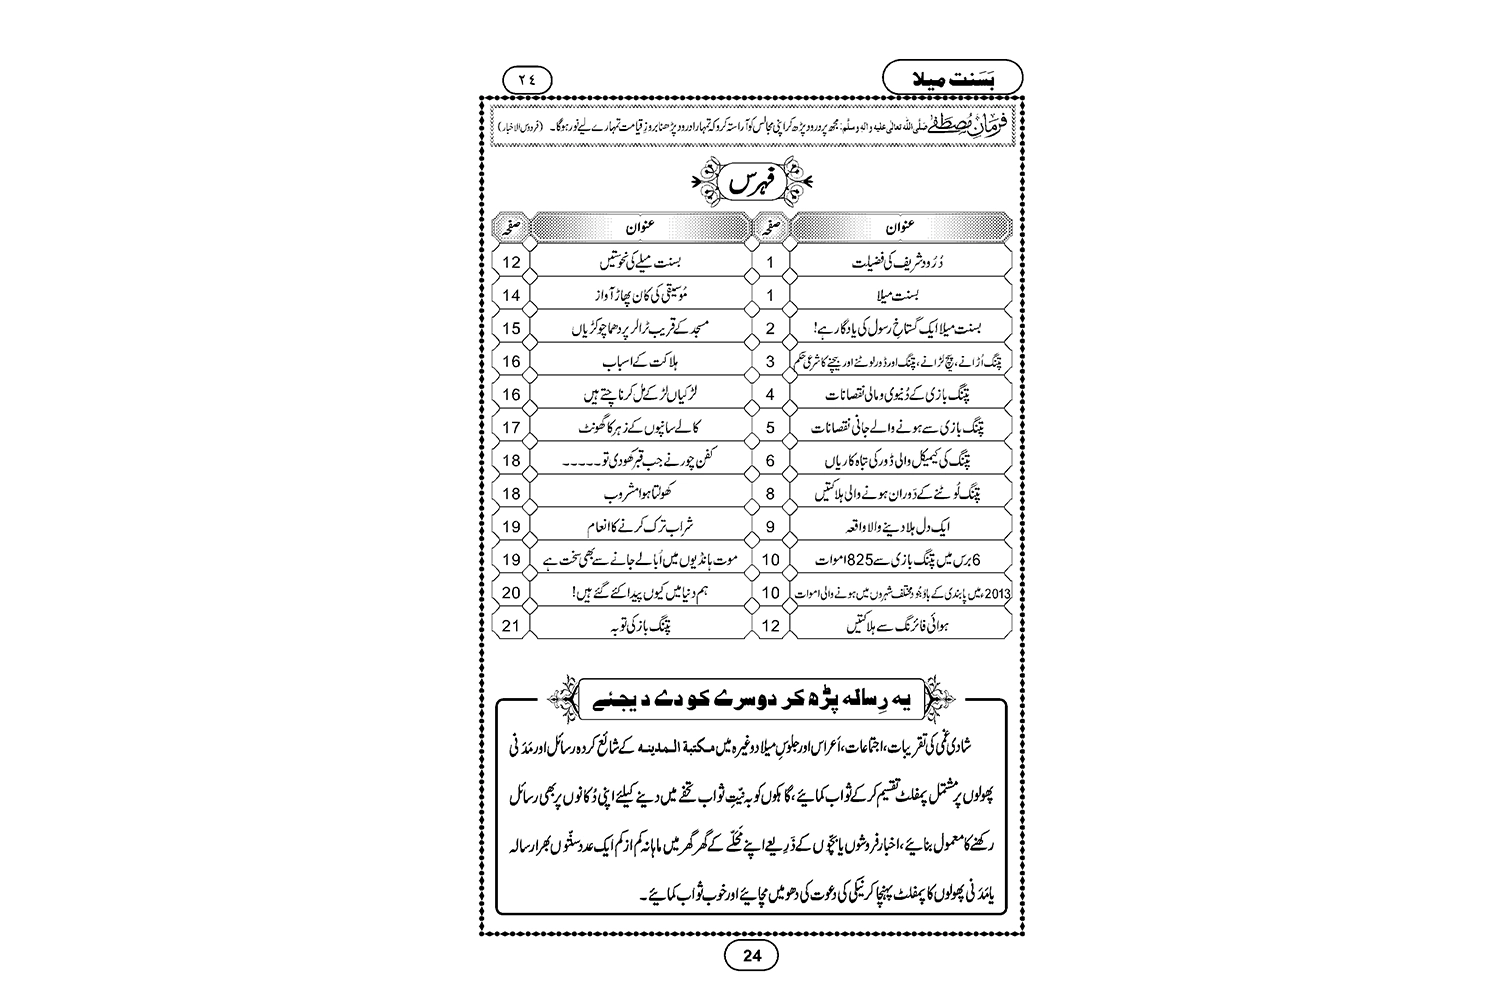 بَسَنت میلا
٢٤
فرمانِ مُصطَفٰے صلَّی اللہ تعالٰی علیہ واٰلہٖ وسلَّم: مجھ پر درود پڑھ کر اپنی مجالس کو آراستہ کرو کہ تمہارا درود پڑھنا بروزِ قیامت تمہارے لیے نور ہوگا۔ (فردوس الاخبار)
فہرس
عنوان صفحہ عنوان صفحہ
دُرُود شریف کی فضیلت 1 بسنت میلے کی نحوستیں 12
بسنت میلا 1 مُوسیقی کی کان پھاڑ آواز 14
بسنت میلا ایک گستاخِ رسول کی یادگار ہے! 2 مسجد کے قریب ٹرالر پر دھما چوکڑیاں 15
پتنگ اُڑانے، پیچ لڑانے، پتنگ اور ڈور لوٹنے اور بیچنے کا شرعی حکم 3 ہلاکت کے اسباب 16
پتنگ بازی کے دُنیوی و مالی نقصانات 4 لڑکیاں لڑکے مل کر ناچتے ہیں 16
پتنگ بازی سے ہونے والے جانی نقصانات 5 کالے سانپوں کے زہر کا گھونٹ 17
پتنگ کی کیمیکل والی ڈور کی تباہ کاریاں 6 کفن چور نے جب قبر کھودی تو۔۔۔۔۔ 18
پتنگ لُوٹنے کے دَوران ہونے والی ہلاکتیں 8 کھولتا ہوا مشروب 18
ایک دل ہلا دینے والا واقعہ 9 شراب ترک کرنے کا انعام 19
6 برس میں پتنگ بازی سے 825 اموات 10 موت ہانڈیوں میں اُبالے جانے سے بھی سخت ہے 19
2013ء میں پابندی کے باوُجُود مختلف شہروں میں ہونے والی اموات 10 ہم دنیا میں کیوں پیدا کئے گئے ہیں! 20
ہوائی فائرنگ سے ہلاکتیں 12 پتنگ باز کی توبہ 21
یہ رِسالہ پڑھ کر دوسرے کو دے دیجئے
شادی غمی کی تقریبات، اجتماعات، اَعراس اور جلوسِ میلاد وغیرہ میں مکتبۃ المدینہ کے شائع کردہ رسائل اور مَدَنی
پھولوں پر مشتمل پمفلٹ تقسیم کرکے ثواب کمائیے، گاہکوں کو بہ نیّتِ ثواب تحفے میں دینے کیلئے اپنی دُکانوں پر بھی رسائل
رکھنے کا معمول بنائیے، اخبار فروشوں یا بچّوں کے ذَرِیعے اپنے مَحَلّے کے گھر گھر میں ماہانہ کم از کم ایک عدد سنّتوں بھرا رسالہ
یا مَدَنی پھولوں کا پمفلٹ پہنچا کر نیکی کی دعوت کی دھومیں مچائیے اور خوب ثواب کمائیے۔
24